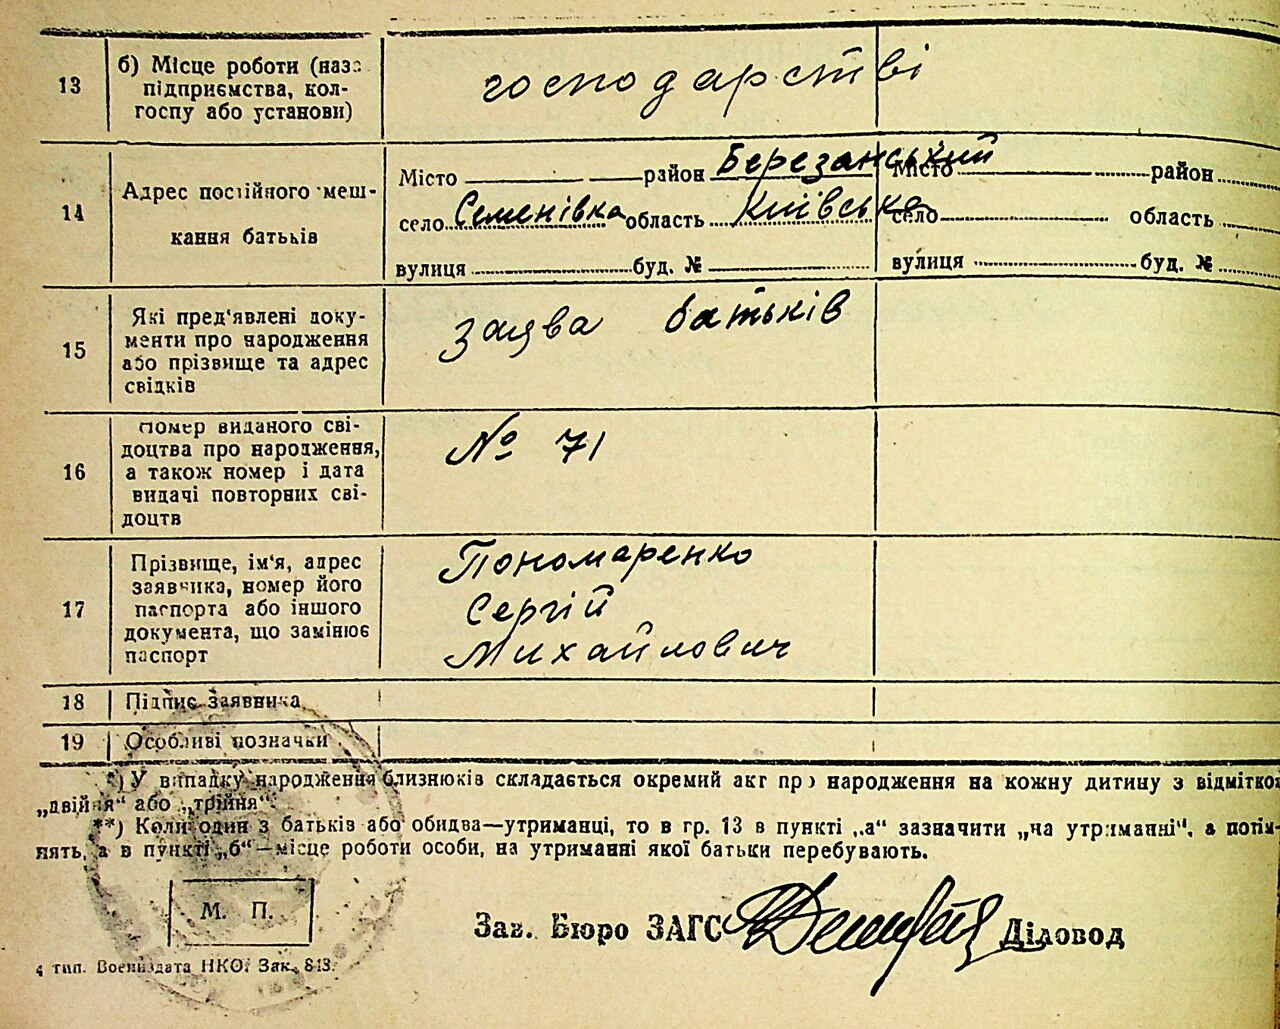 13 б) Місце роботи (назв
підприємства, кол-
госпу або установи)
господарстві
14 Адрес постійного меш-
кання батьків
Місто район Березанський Місто район
село Семенівка область Київська село область
вулиця буд. № вулиця буд. №
15 Які пред'явлені доку-
менти про народження
або прізвище та адрес
свідків
заява батьків
16 Номер виданого сві-
доцтва про народження,
а також номер і дата
видачі повторних сві-
доцтв
№ 71
17 Прізвище, ім'я, адрес
заявника, номер його
паспорта або іншого
документа, що замінює
паспорт
Пономаренко
Сергій
Михайлович
18 Підпис заявника
19 Особливі позначки
*) У випадку народження близнюків складається окремий акт про народження на кожну дитину з відміткою
„двійня“ або „трійня“.
**) Коли один з батьків або обидва—утриманці, то в гр. 13 в пункті „а“ зазначити „на утриманні“, а потім
нять, а в пункті „б“—місце роботи особи, на утриманні якої батьки перебувають.
М. П.
Зав. Бюро ЗАГС Діловод
4 тип. Воениздата НКО. Зак. 843.